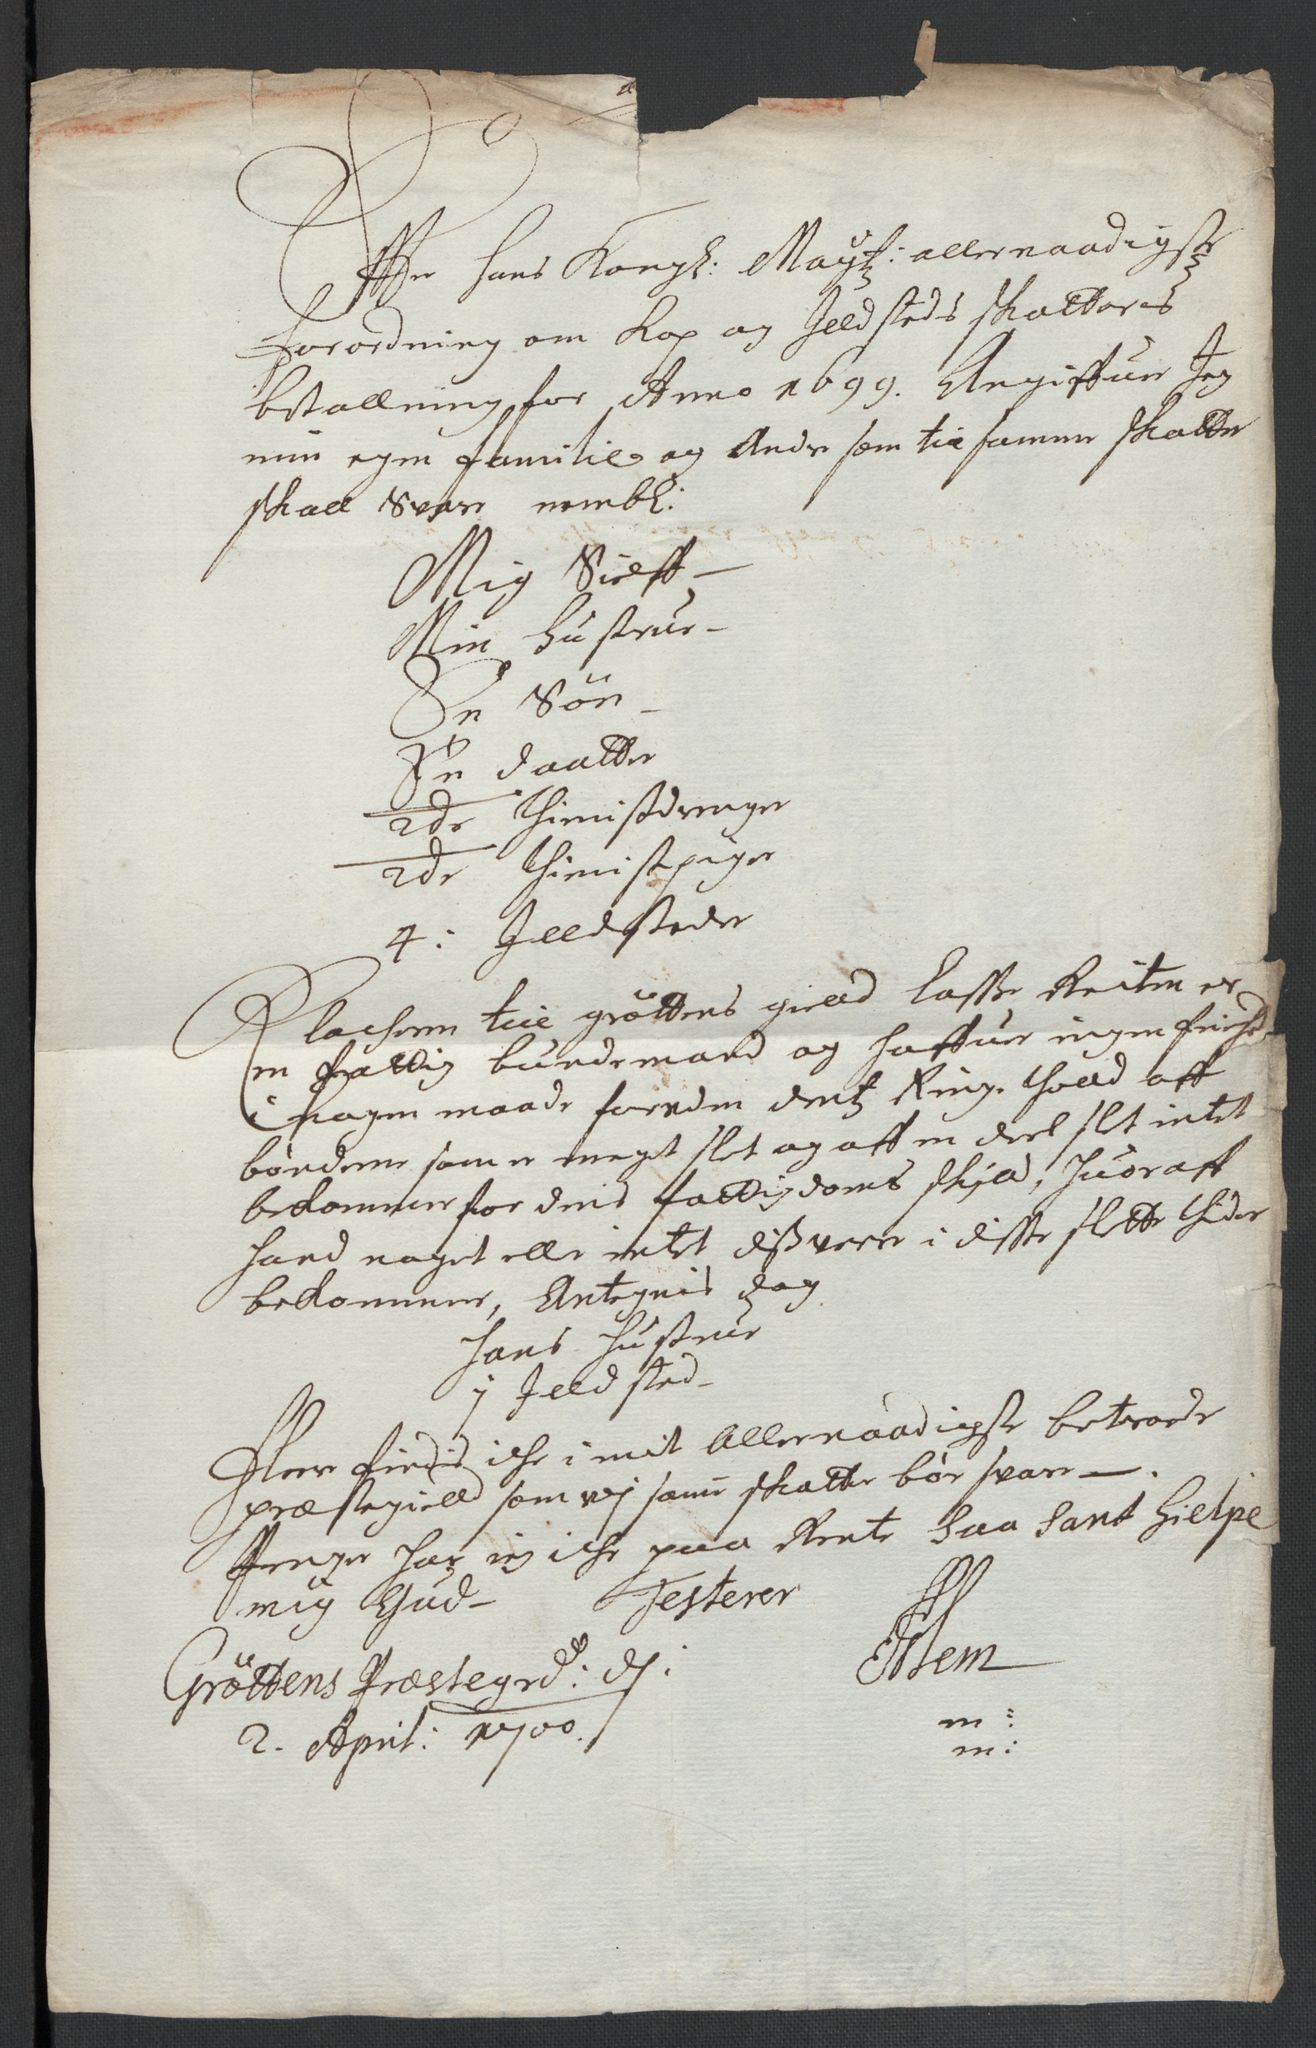 Effter Hans Kongl: Mayts: allernaadigste
forordning om Kop og Jlldsteds skatteres
bestalling for Anno 1699. Angiffuer Jeg
min egen familie og Andre som till samme skatter
skall Svare nembl:
Mig Sielff
Min Hustrue
En Søn
En daatter
2de thienistdrenger
2de thienistpiger
4: Jlldsteder
Klocheren till gröttens gield Lasse Reiten er
en fattig bundemand og haffuer ingen friehed
i nogen maade foruden dens Ringe thold aff
bønderne som er meget slet og aff en deel slet intet
bekommer for deris fattigdoms skyld, huoraff
hand noget eller intet dissverre i disse slette thider
bekommer, Antegnis dog
hans hustrue
j Jlldsted
Fleere findis iche i mit Allernaadigste betroede
præstegield som vej samme skatte bør svare.
Penge har jeg iche paa Rente Saa Sant Hielpe
mig Gud Testerer
Gröttens Præstegrd: dj:
2. April: 1700.
m:
m: